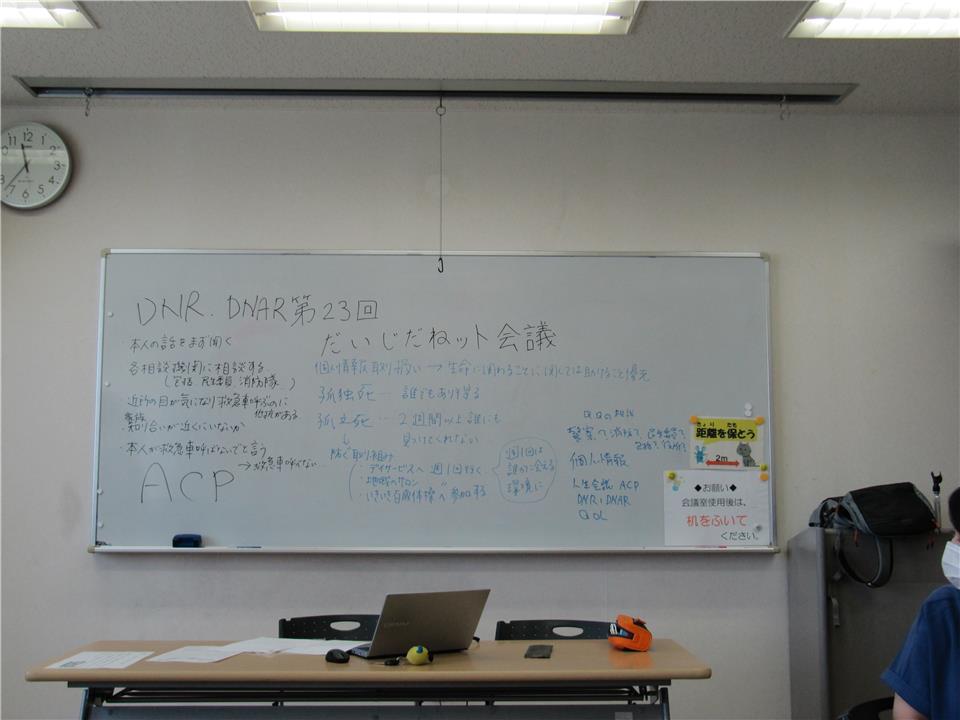 DNR. DNAR 第23回
だいじだねット会議
・本人の話をまず聞く
各相談機関に相談する
(包括 民生委員 消防隊...)
近所の目が気になり救急車呼ぶのに
抵抗がある
親族
・知り合いが近くにいないか
・本人が救急車呼ばないでと言う
→救急車呼ばない...
ACP
個人情報取り扱い → 生命に関わることに関しては助けること優先
孤独死… 誰でもあり得る
孤立死… 2週間以上誰にも
見つけてくれない
防ぐ取り組み
・デイサービスへ 週1回行く
・地域のサロン
・いきいき百歳体操へ参加する
週1回は
誰かに会える
環境に
QQの相談
警察?消防?民生委員?
個人情報
人生会議 ACP
DNR、DNAR
QOL
きょり たも
距離を保とう
2m
◆お願い◆
会議室使用後は、
机をふいて
ください。
11 12 1
2
3
4
5
6
7
8